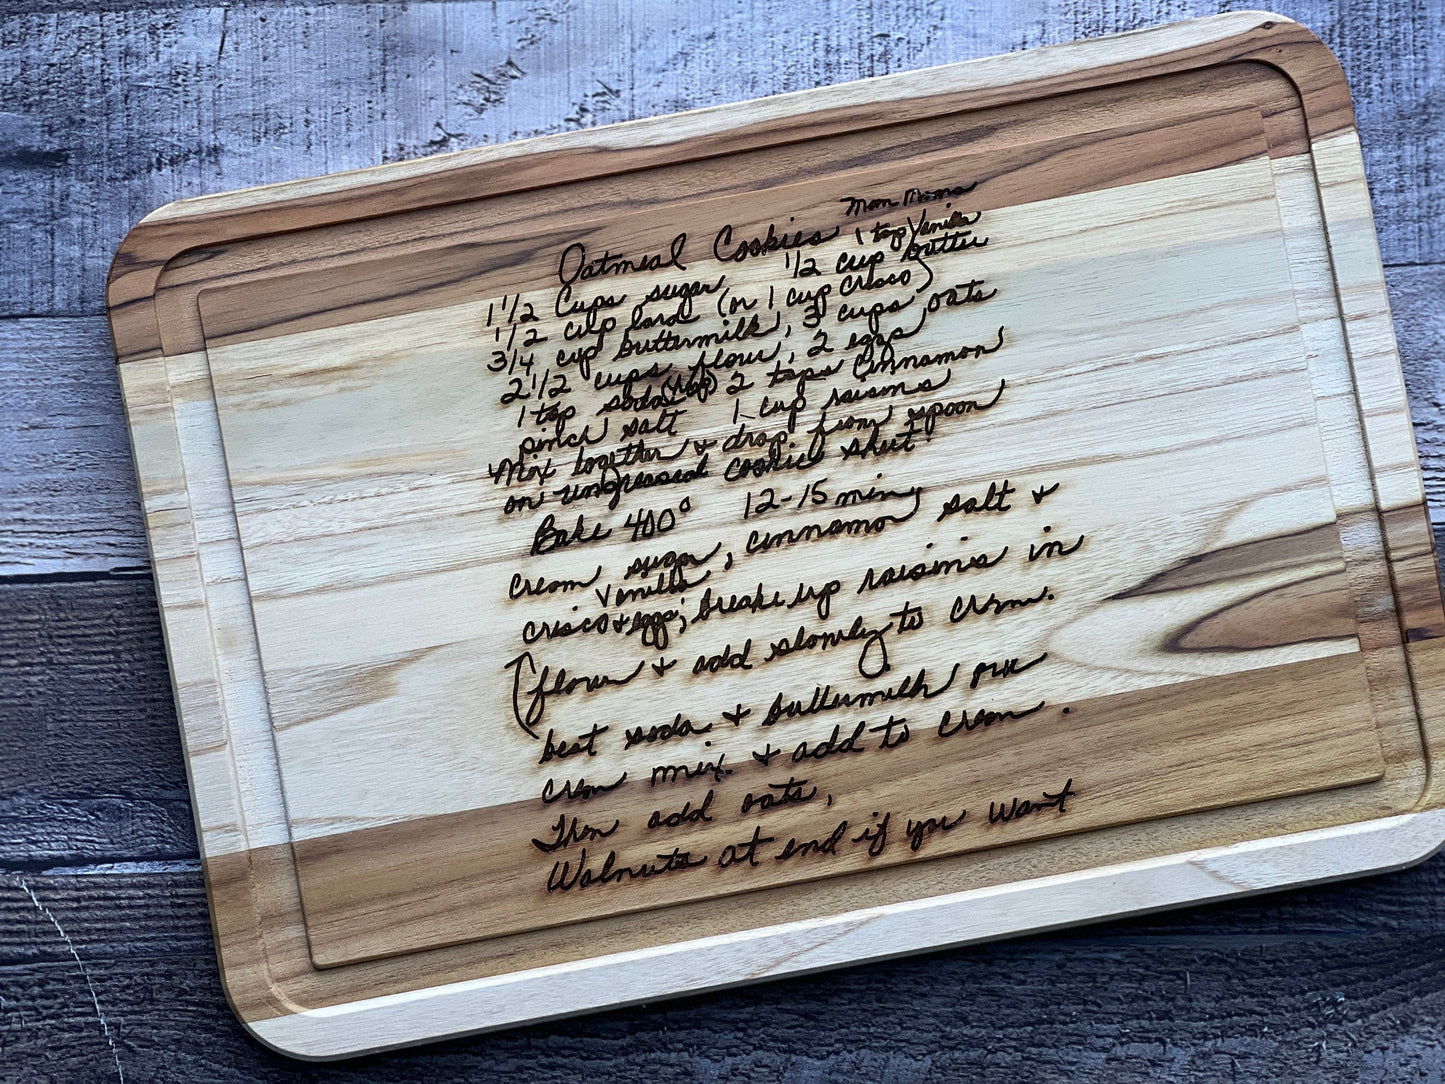 Oatmeal Cookies Mom Mom's
1 1/2 Cups sugar 1 tsp Vanilla
1/2 cup lard (or 1 cup Crisco) 1/2 cup butter
3/4 cup buttermilk, 3 cups oats
2 1/2 cups flour, 2 eggs
1 tsp soda 2 tsps Cinnamon
pinch salt 1 cup raisins
Mix together & drop from spoon
on ungreased cookie sheet.
Bake 400° 12-15 min,
cream sugar, cinnamon salt &
Vanilla
crisco & eggs; break up raisins in
(flour & add slowly to crem.
beat soda & buttermilk
crem mix & add to crem.
Then add oats,
Walnuts at end if you want